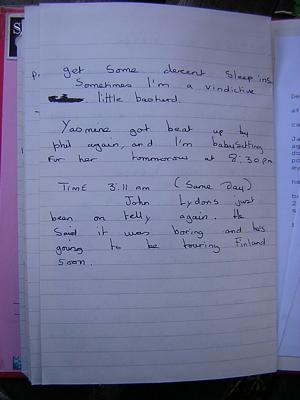 get some decent sleep in.
Sometimes I'm a vindictive
little bastard.
Yasmine got beat up by
phil again, and I'm babysitting
for her tommorow at 8:30pm
TIME 3:11 am (Same Day)
John Lydons just
been on telly again. He
Said it was boring and he's
going to be touring Finland
soon.